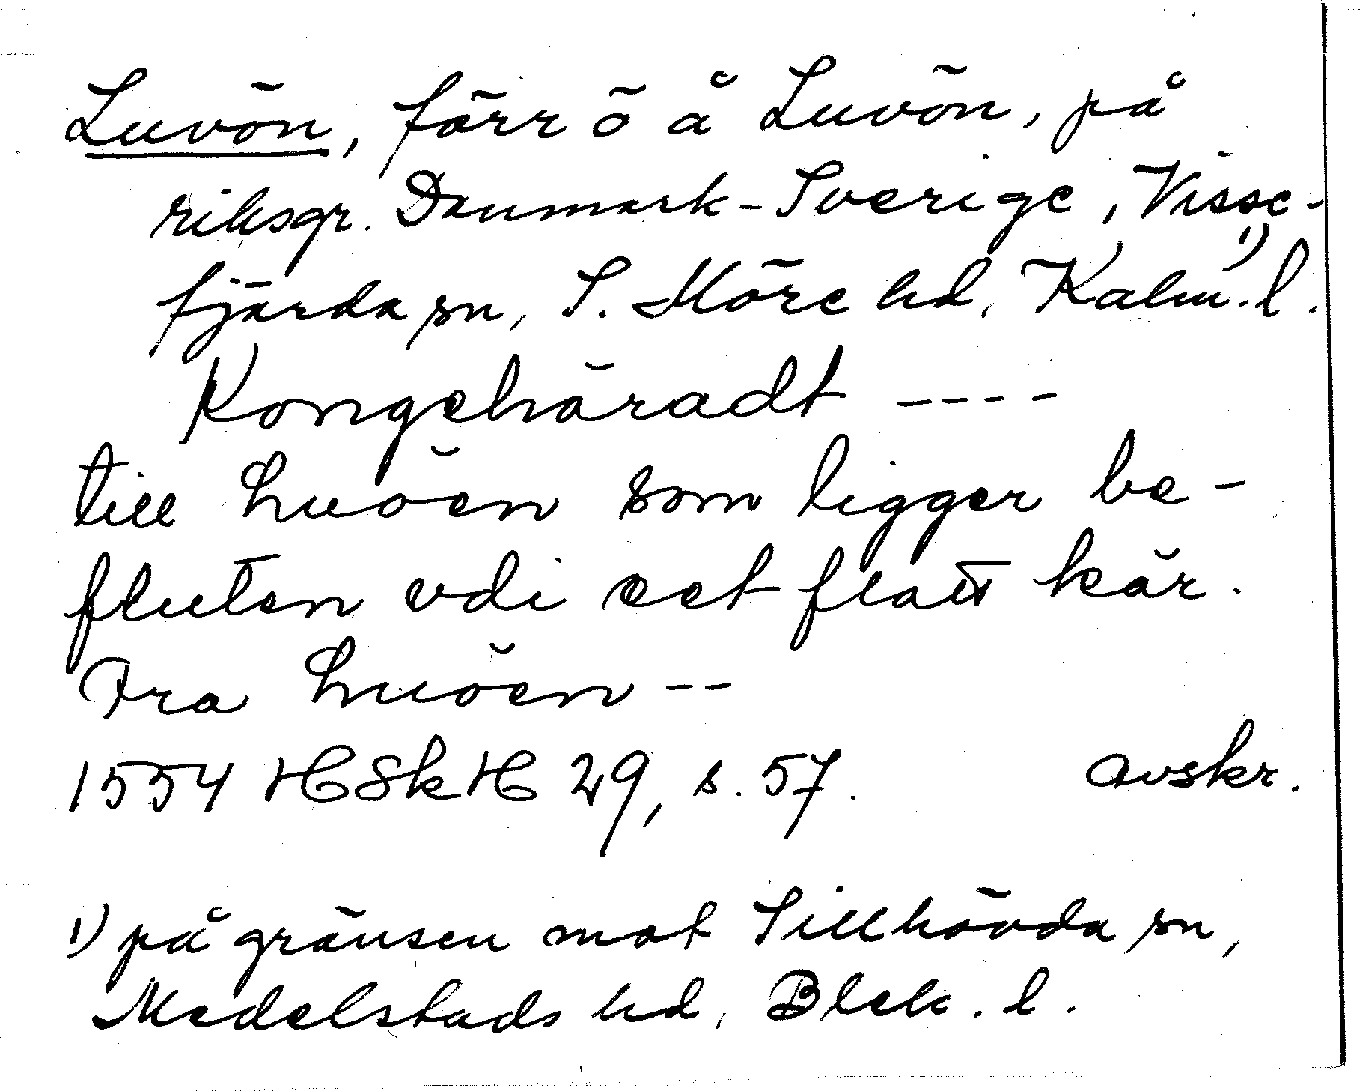 Luvön, förr ö å Luvön, på
riksgr. Danmark-Sverige, Visse-
fjärda sn, S. Möre hd, Kalm. l. 1)
Kongehäradt ----
till Luöen som ligger be-
fluten vdi eet flatt kär.
Fra Luöen --
1554 HSkH 29, s. 57. avskr.
1) på gränsen mot Sillhövda sn,
Medelstads hd, Blek. l.